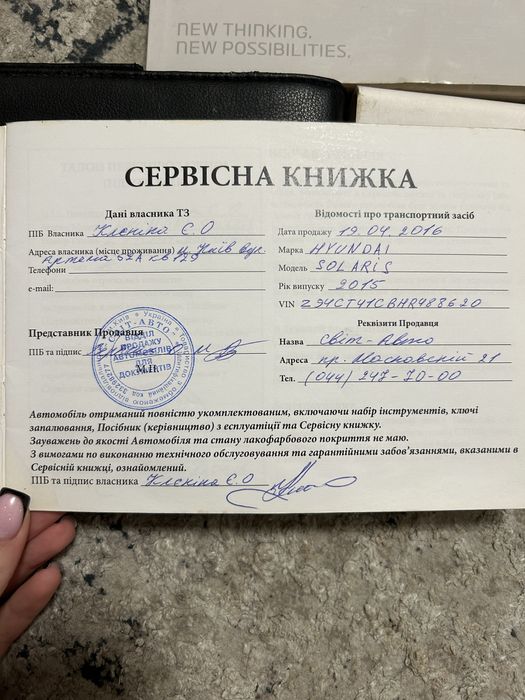 NEW THINKING.
NEW POSSIBILITIES.
СЕРВІСНА КНИЖКА
Дані власника ТЗ
ПІБ Власника Клєніна Є.О
Адреса власника (місце проживання) м. Київ вул.
Артема 52А кв 129
Телефони
e-mail:
Представник Продавця
ПІБ та підпис
М.П.
СВІТ-АВТО
ВІДДІЛ
ПРОДАЖУ
АВТОМОБІЛІВ
ДЛЯ
ДОКУМЕНТІВ
Відомості про транспортний засіб
Дата продажу 19.04.2016
Марка HYUNDAI
Модель SOLARIS
Рік випуску 2015
VIN Z94CT41CBHR488620
Реквізити Продавця
Назва Світ-Авто
Адреса пр. Московский 21
Тел. (044) 247-70-00
Автомобіль отриманий повністю укомплектованим, включаючи набір інструментів, ключі
запалювання, Посібник (керівництво) з есплуатіції та Сервісну книжку.
Зауважень до якості Автомобіля та стану лакофарбового покриття не маю.
З вимогами по виконанню технічного обслуговування та гарантійними забов'язаннями, вказаними в
Сервісній книжці, ознайомлений.
ПІБ та підпис власника Клєніна Є.О